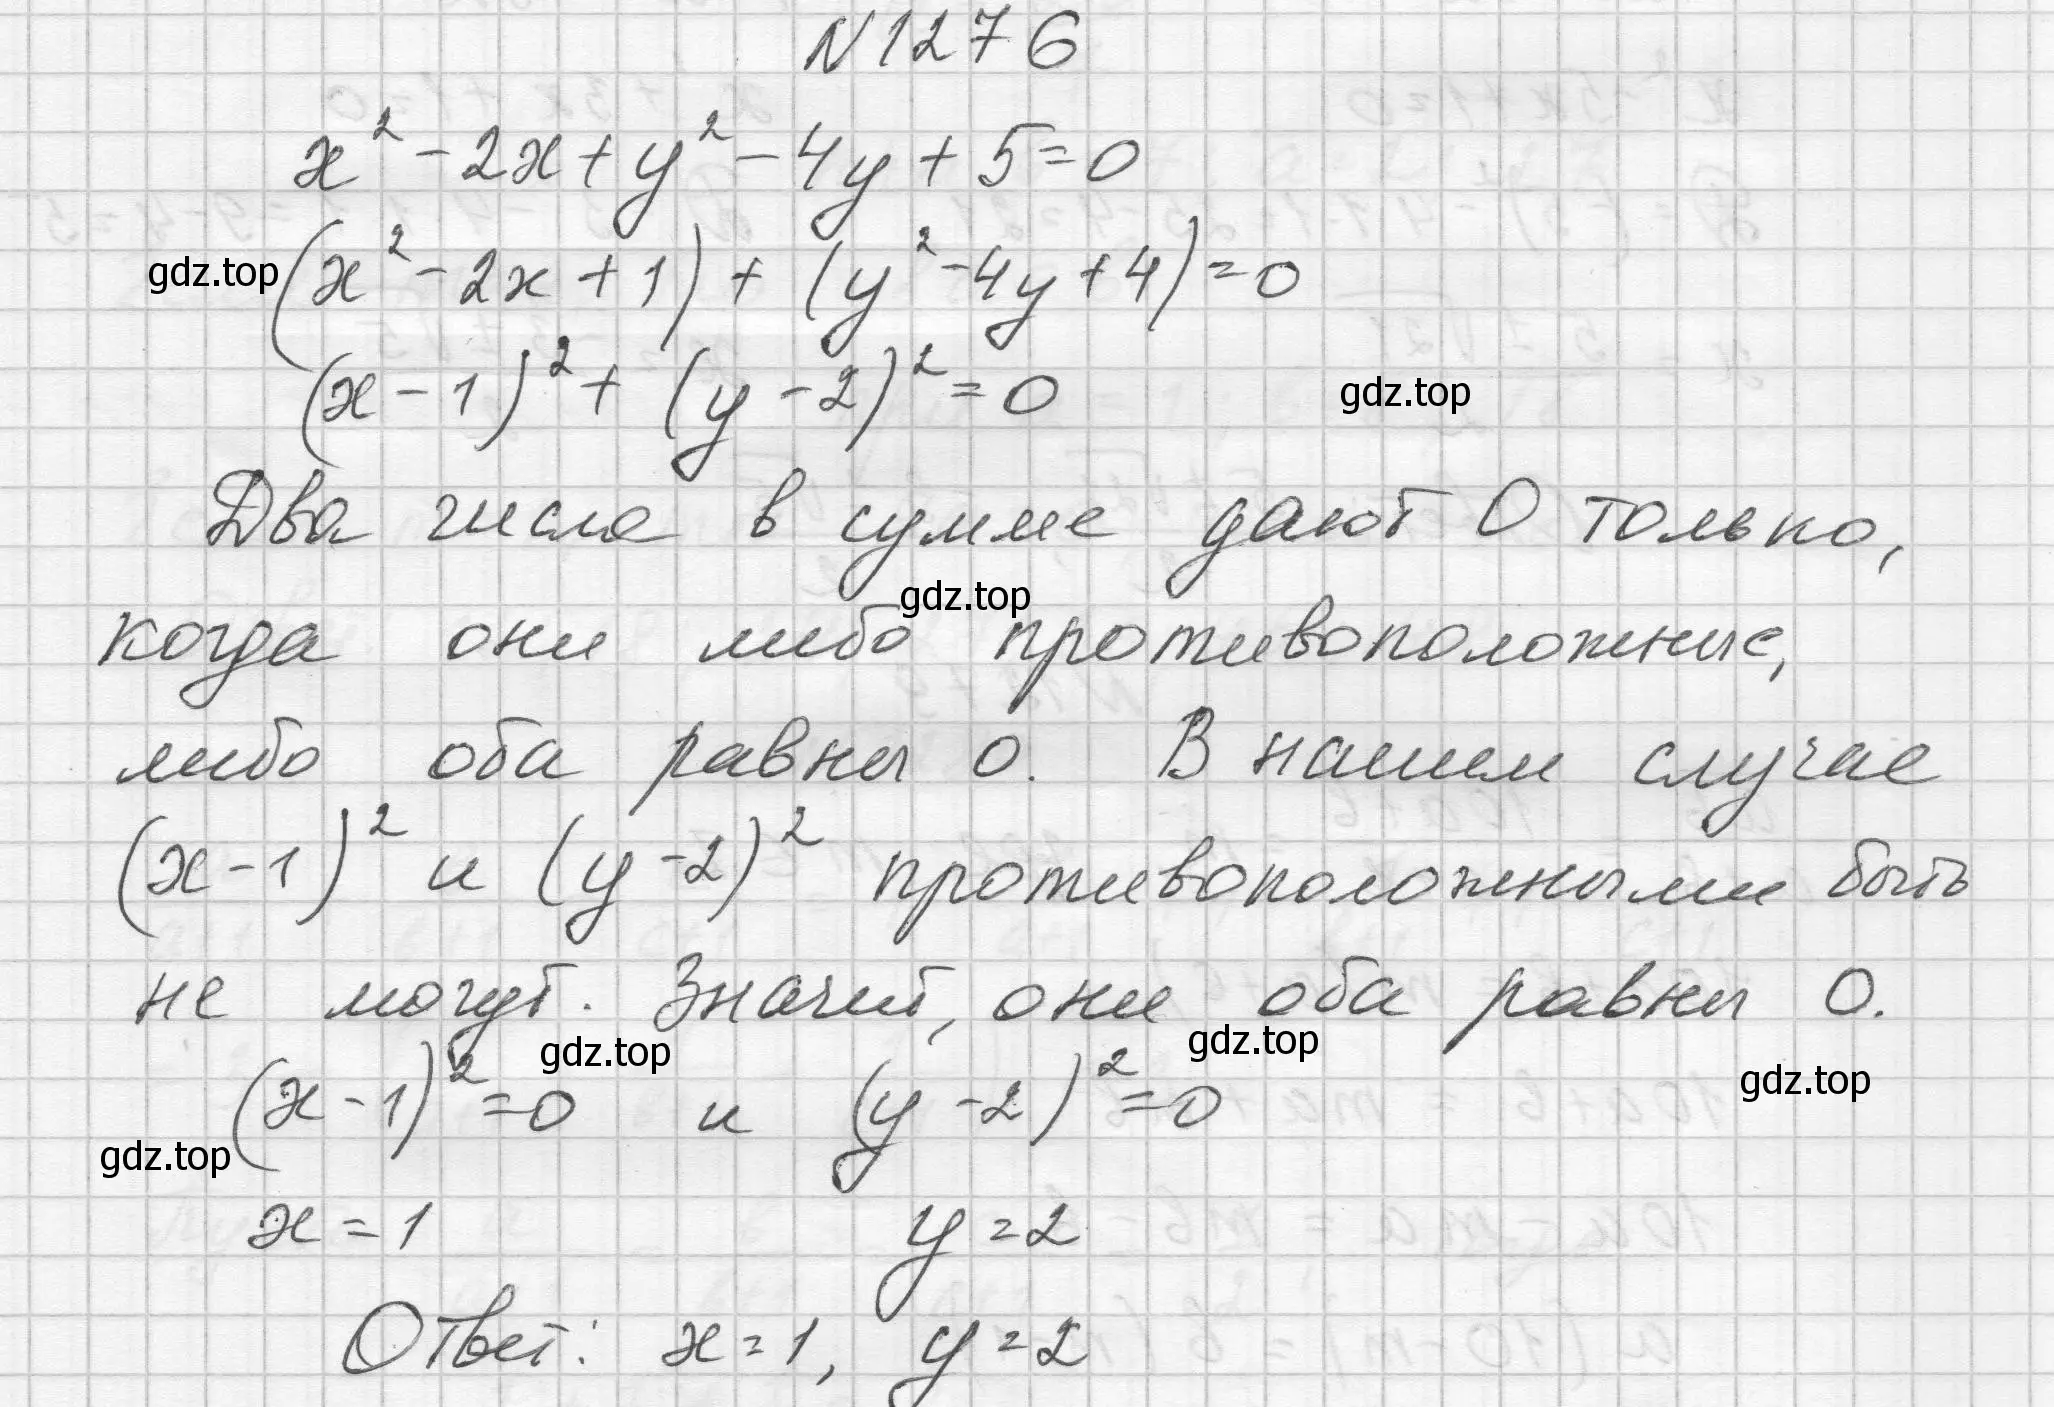 N 1276
x² - 2x + y² - 4y + 5 = 0
gdz.top
(x² - 2x + 1) + (y² - 4y + 4) = 0
(x - 1)² + (y - 2)² = 0
gdz.top
Два числа в сумме дают 0 только,
gdz.top
когда они либо противоположные,
либо оба равны 0. В нашем случае
(x - 1)² и (y - 2)² противоположными быть
не могут. Значит, они оба равны 0.
gdz.top
gdz.top
gdz.top
(x - 1)² = 0 и (y - 2)² = 0
gdz.top
x = 1 y = 2
Ответ: x = 1, y = 2